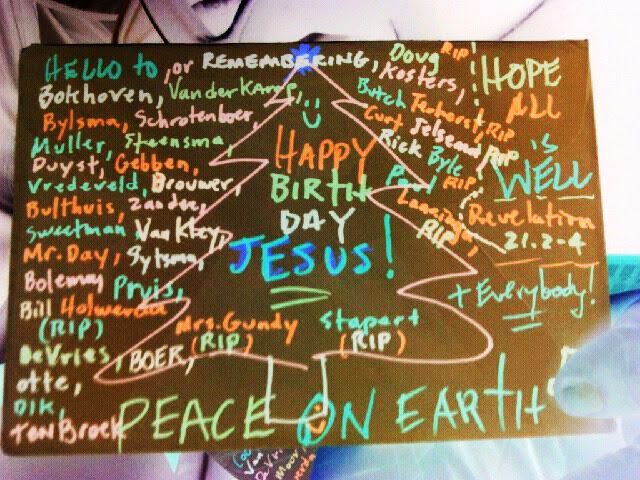 HELLO to, or REMEMBERING, Doug RIP
Bokhoven, VanderKamp, Kosters,
Bylsma, Schrotenboer,
Muller, Steensma,
Duyst, Gebben,
Vredeveld, Brouwer,
Bulthuis, Zandee,
Sweetman Van Kley,
Mr. Day, Sytsma,
Bolemay Pruis,
Bill Holwerda
(RIP)
DeVries, BOER,
otte,
Dik,
TenBroek
HAPPY
BIRTH
DAY
JESUS!
Mrs. Gundy
(RIP)
Stapert
(RIP)
PEACE ON EARTH
Butch Terhorst, RIP
Curt Jelsema, RIP
Rick Byle RIP
Paul
Lanninga,
RIP
HOPE
ALL
is
WELL
Revelation
21.2-4
+ Everybody!